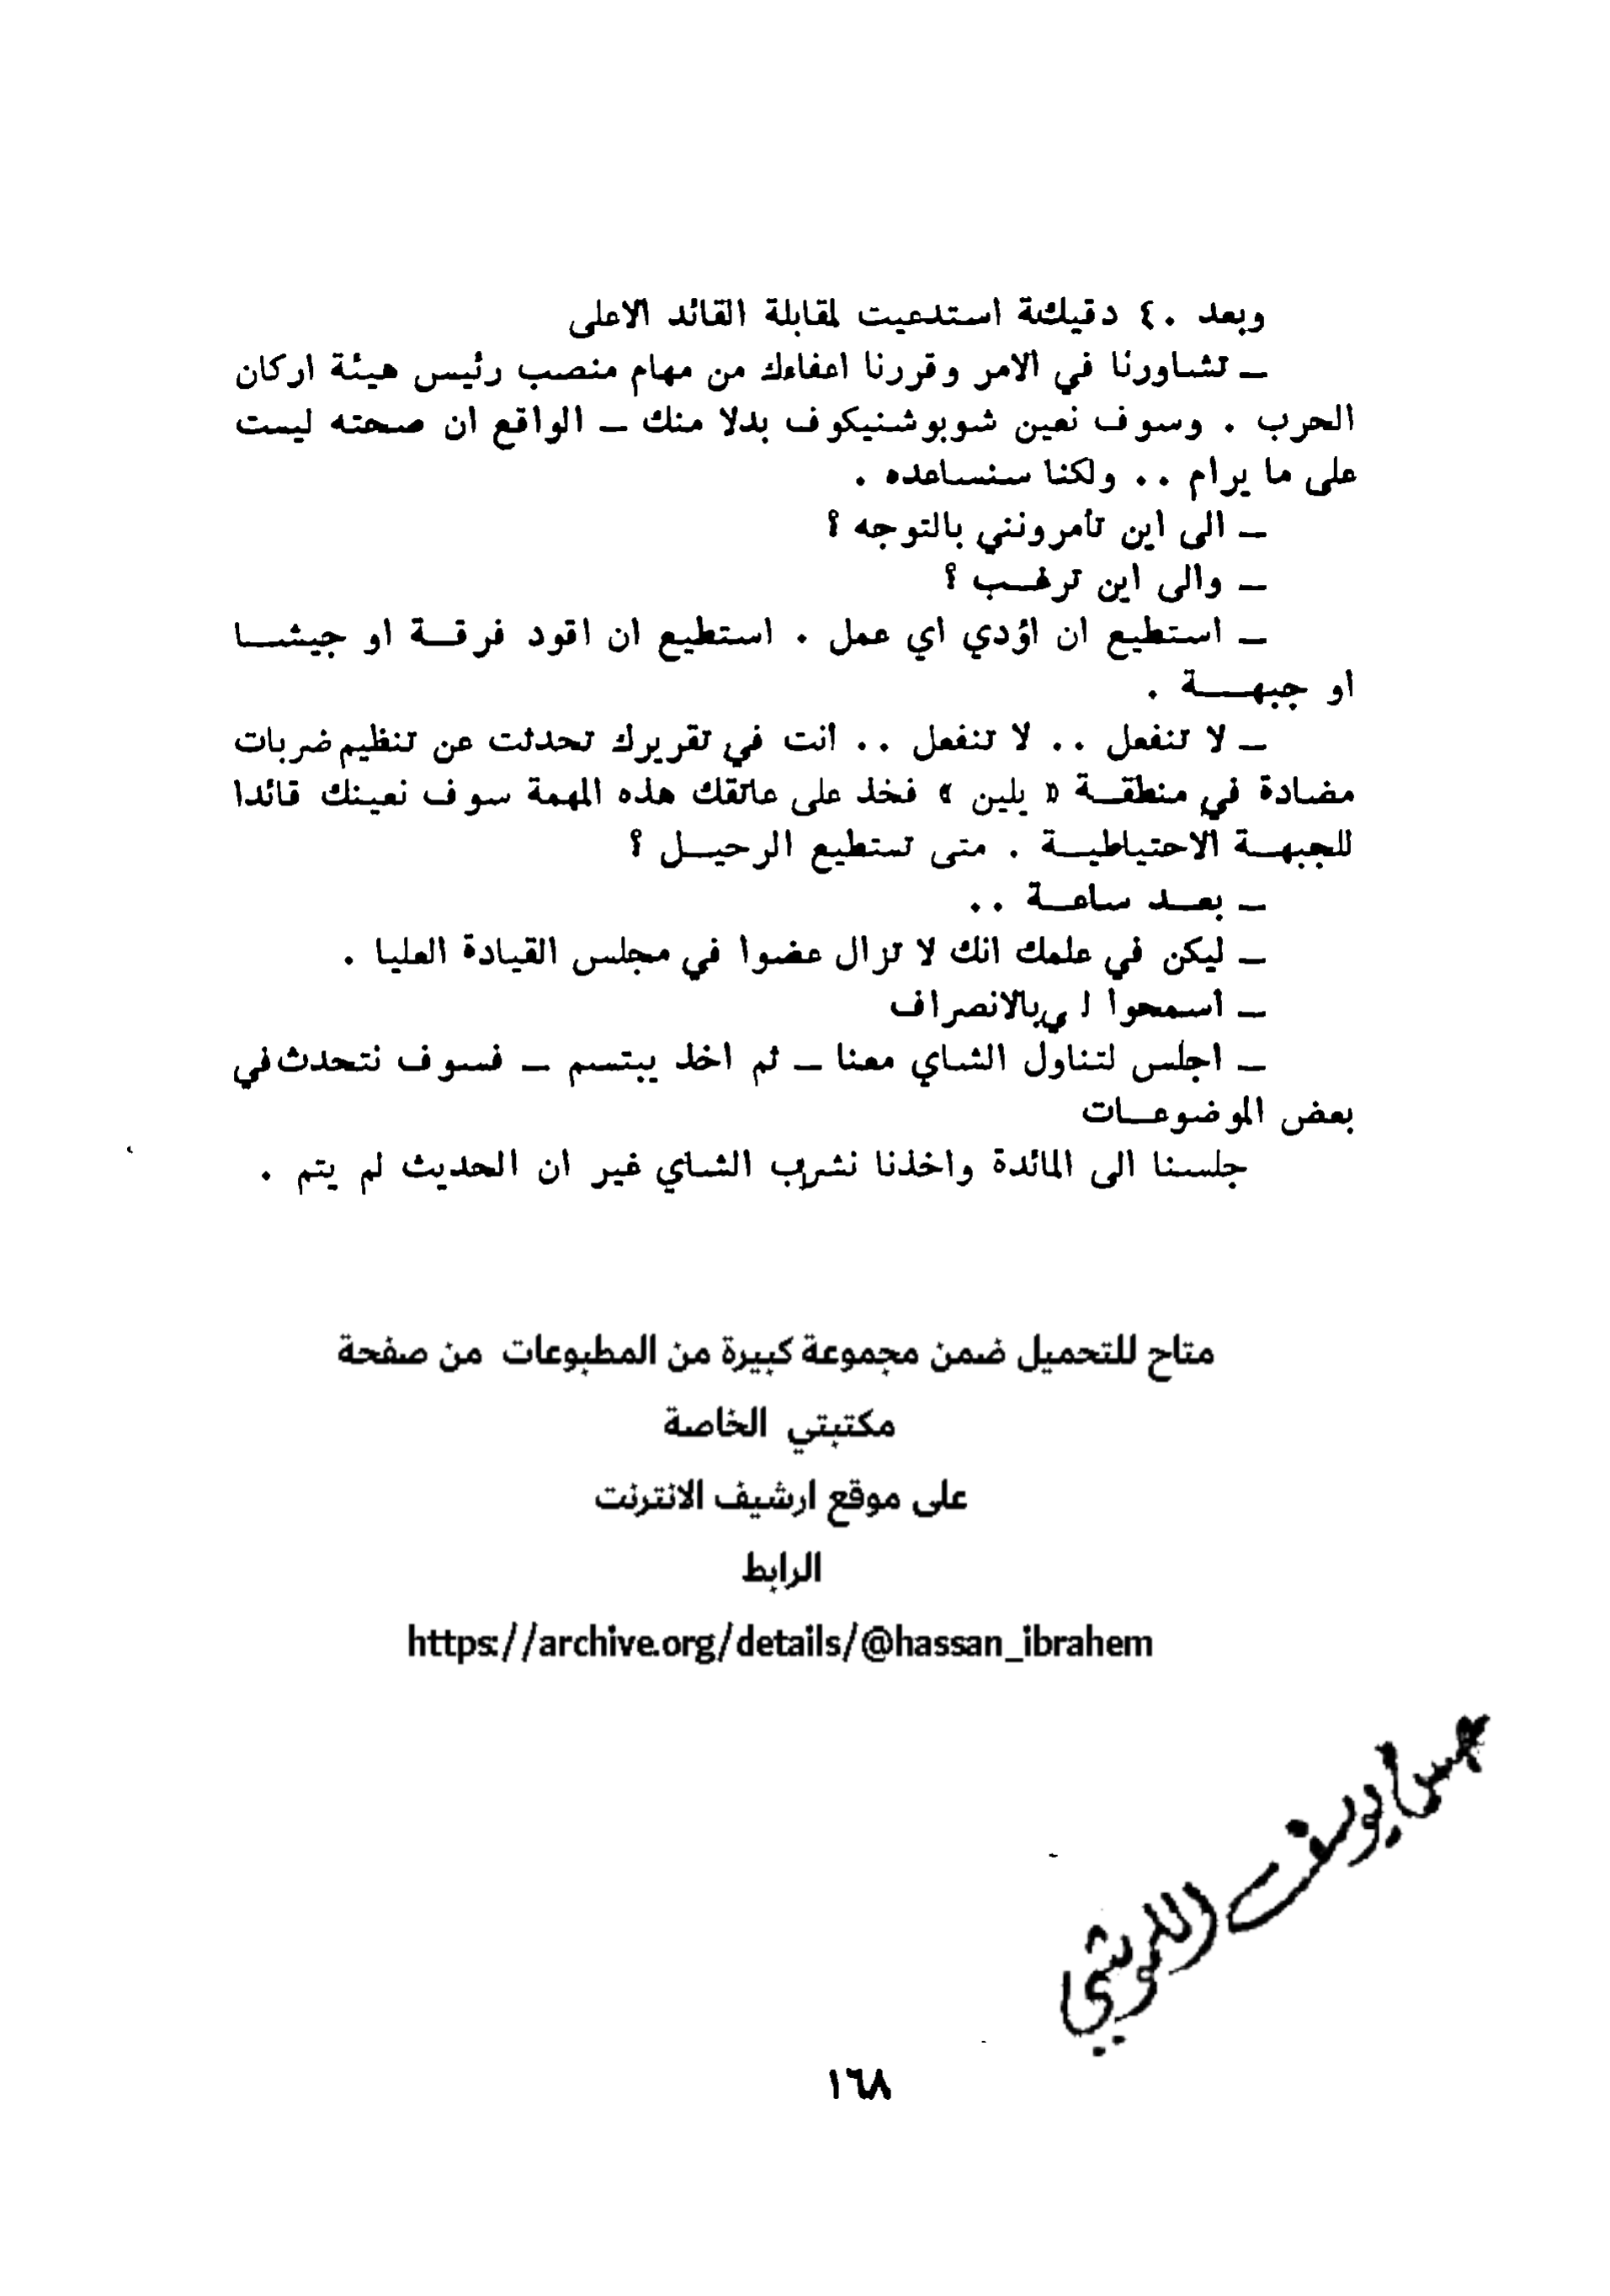 وبعد ٤٠ دقيكة استدعيت لمقابلة القائد الاعلى
ـ تشاورنا في الامر وقررنا اعفاءك من مهام منصب رئيس هيئة اركان
الحرب . وسوف نعين شوبوشنيكوف بدلا منك ـ الواقع ان صحته ليست
على ما يرام .. ولكنا سنساعده .
ـ الى اين تأمرونني بالتوجه ؟
ـ والى اين ترغب ؟
ـ استطيع ان اؤدي اي عمل . استطيع ان اقود فرقة او جيشا
او جبهة .
ـ لا تنفعل .. لا تنفعل .. انت في تقريرك تحدثت عن تنظيم ضربات
مضادة في منطقة « يلين » فخذ على عاتقك هذه المهمة سوف نعينك قائدا
للجبهة الاحتياطية . متى تستطيع الرحيل ؟
ـ بعد ساعة ..
ـ ليكن في علمك انك لا تزال عضوا في مجلس القيادة العليا .
ـ اسمحوا لي بالانصراف
ـ اجلس لتناول الشاي معنا ـ ثم اخذ يبتسم ـ فسوف نتحدث في
بعض الموضوعات
جلسنا الى المائدة واخذنا نشرب الشاي غير ان الحديث لم يتم .
متاح للتحميل ضمن مجموعة كبيرة من المطبوعات من صفحة
مكتبتي الخاصة
على موقع ارشيف الانترنت
الرابط
https://archive.org/details/@hassan_ibrahem
يوسف
١٦٨